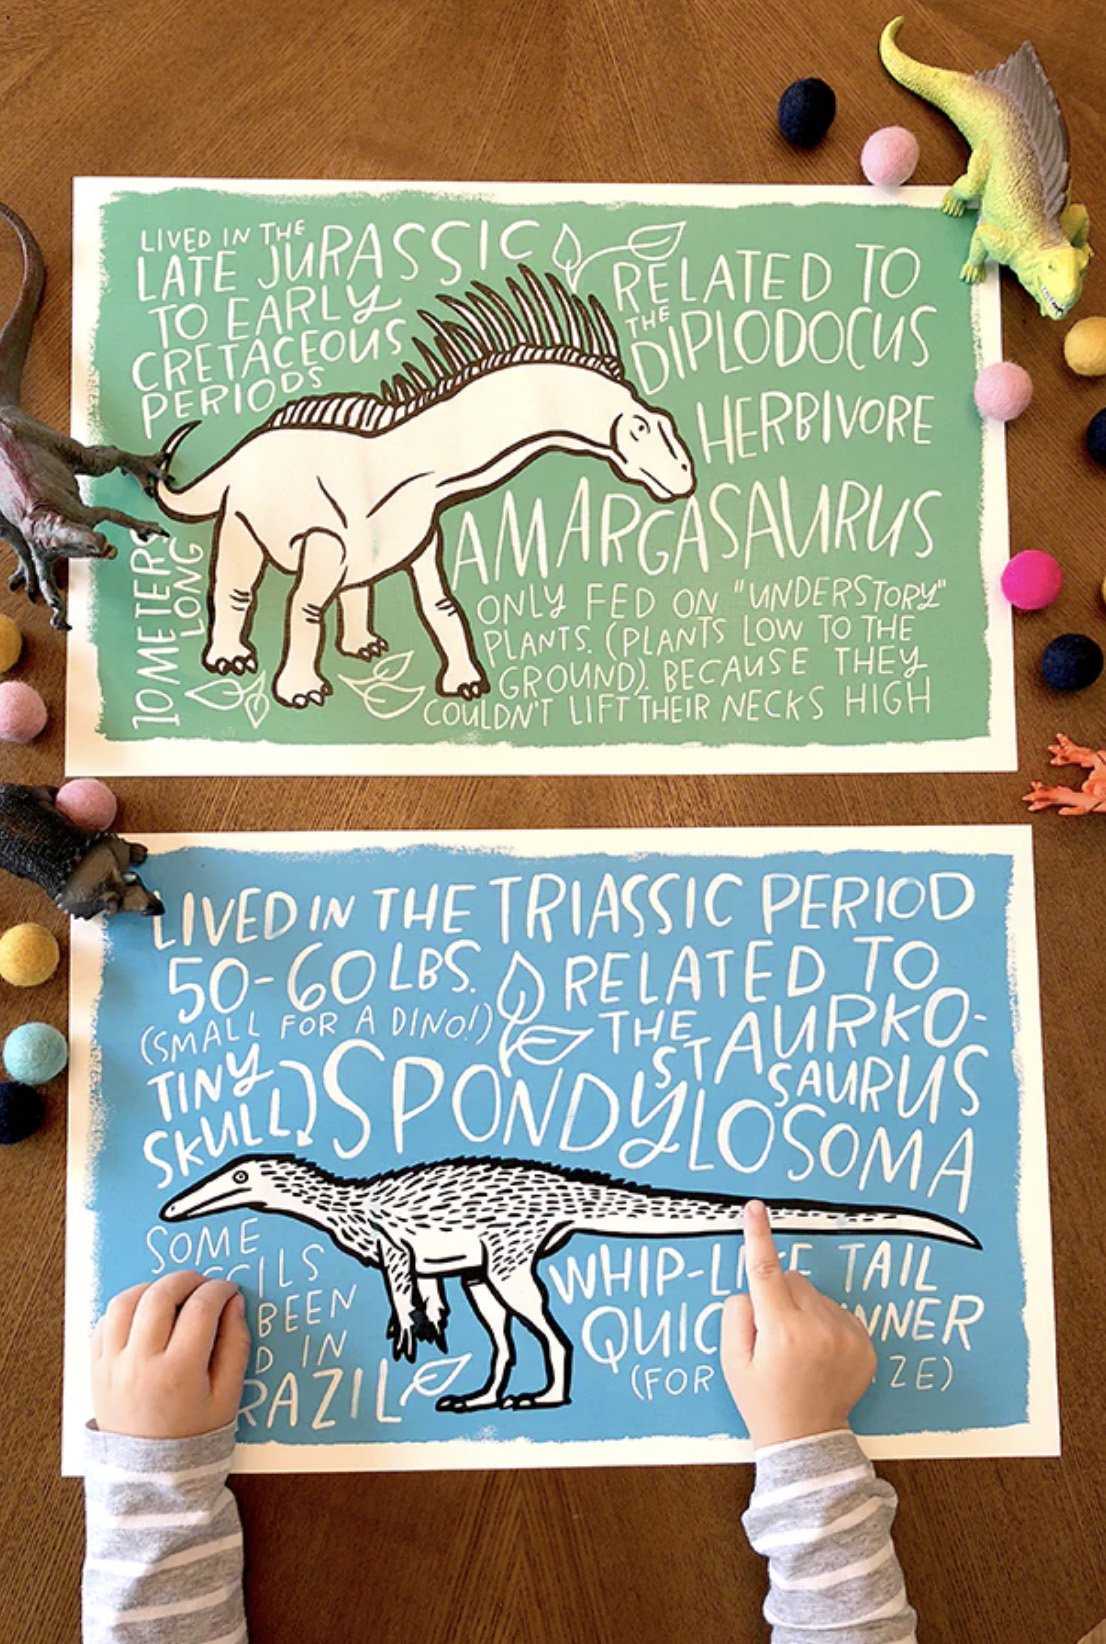 LIVED IN THE
LATE JURASSIC
TO EARLY
CRETACEOUS
PERIODS
RELATED TO
THE
DIPLODOCUS
HERBIVORE
AMARGASAURUS
ONLY FED ON "UNDERSTORY"
PLANTS. (PLANTS LOW TO THE
GROUND). BECAUSE THEY
COULDN'T LIFT THEIR NECKS HIGH
10 METERS
LONG
LIVED IN THE TRIASSIC PERIOD
50-60 LBS.
(SMALL FOR A DINO!)
TINY
SKULL
RELATED TO
THE STAURIKO-
SAURUS
SPONDYLOSOMA
SOME
BEEN
IN
WHIP-LIKE TAIL
QUICK RUNNER
(FOR